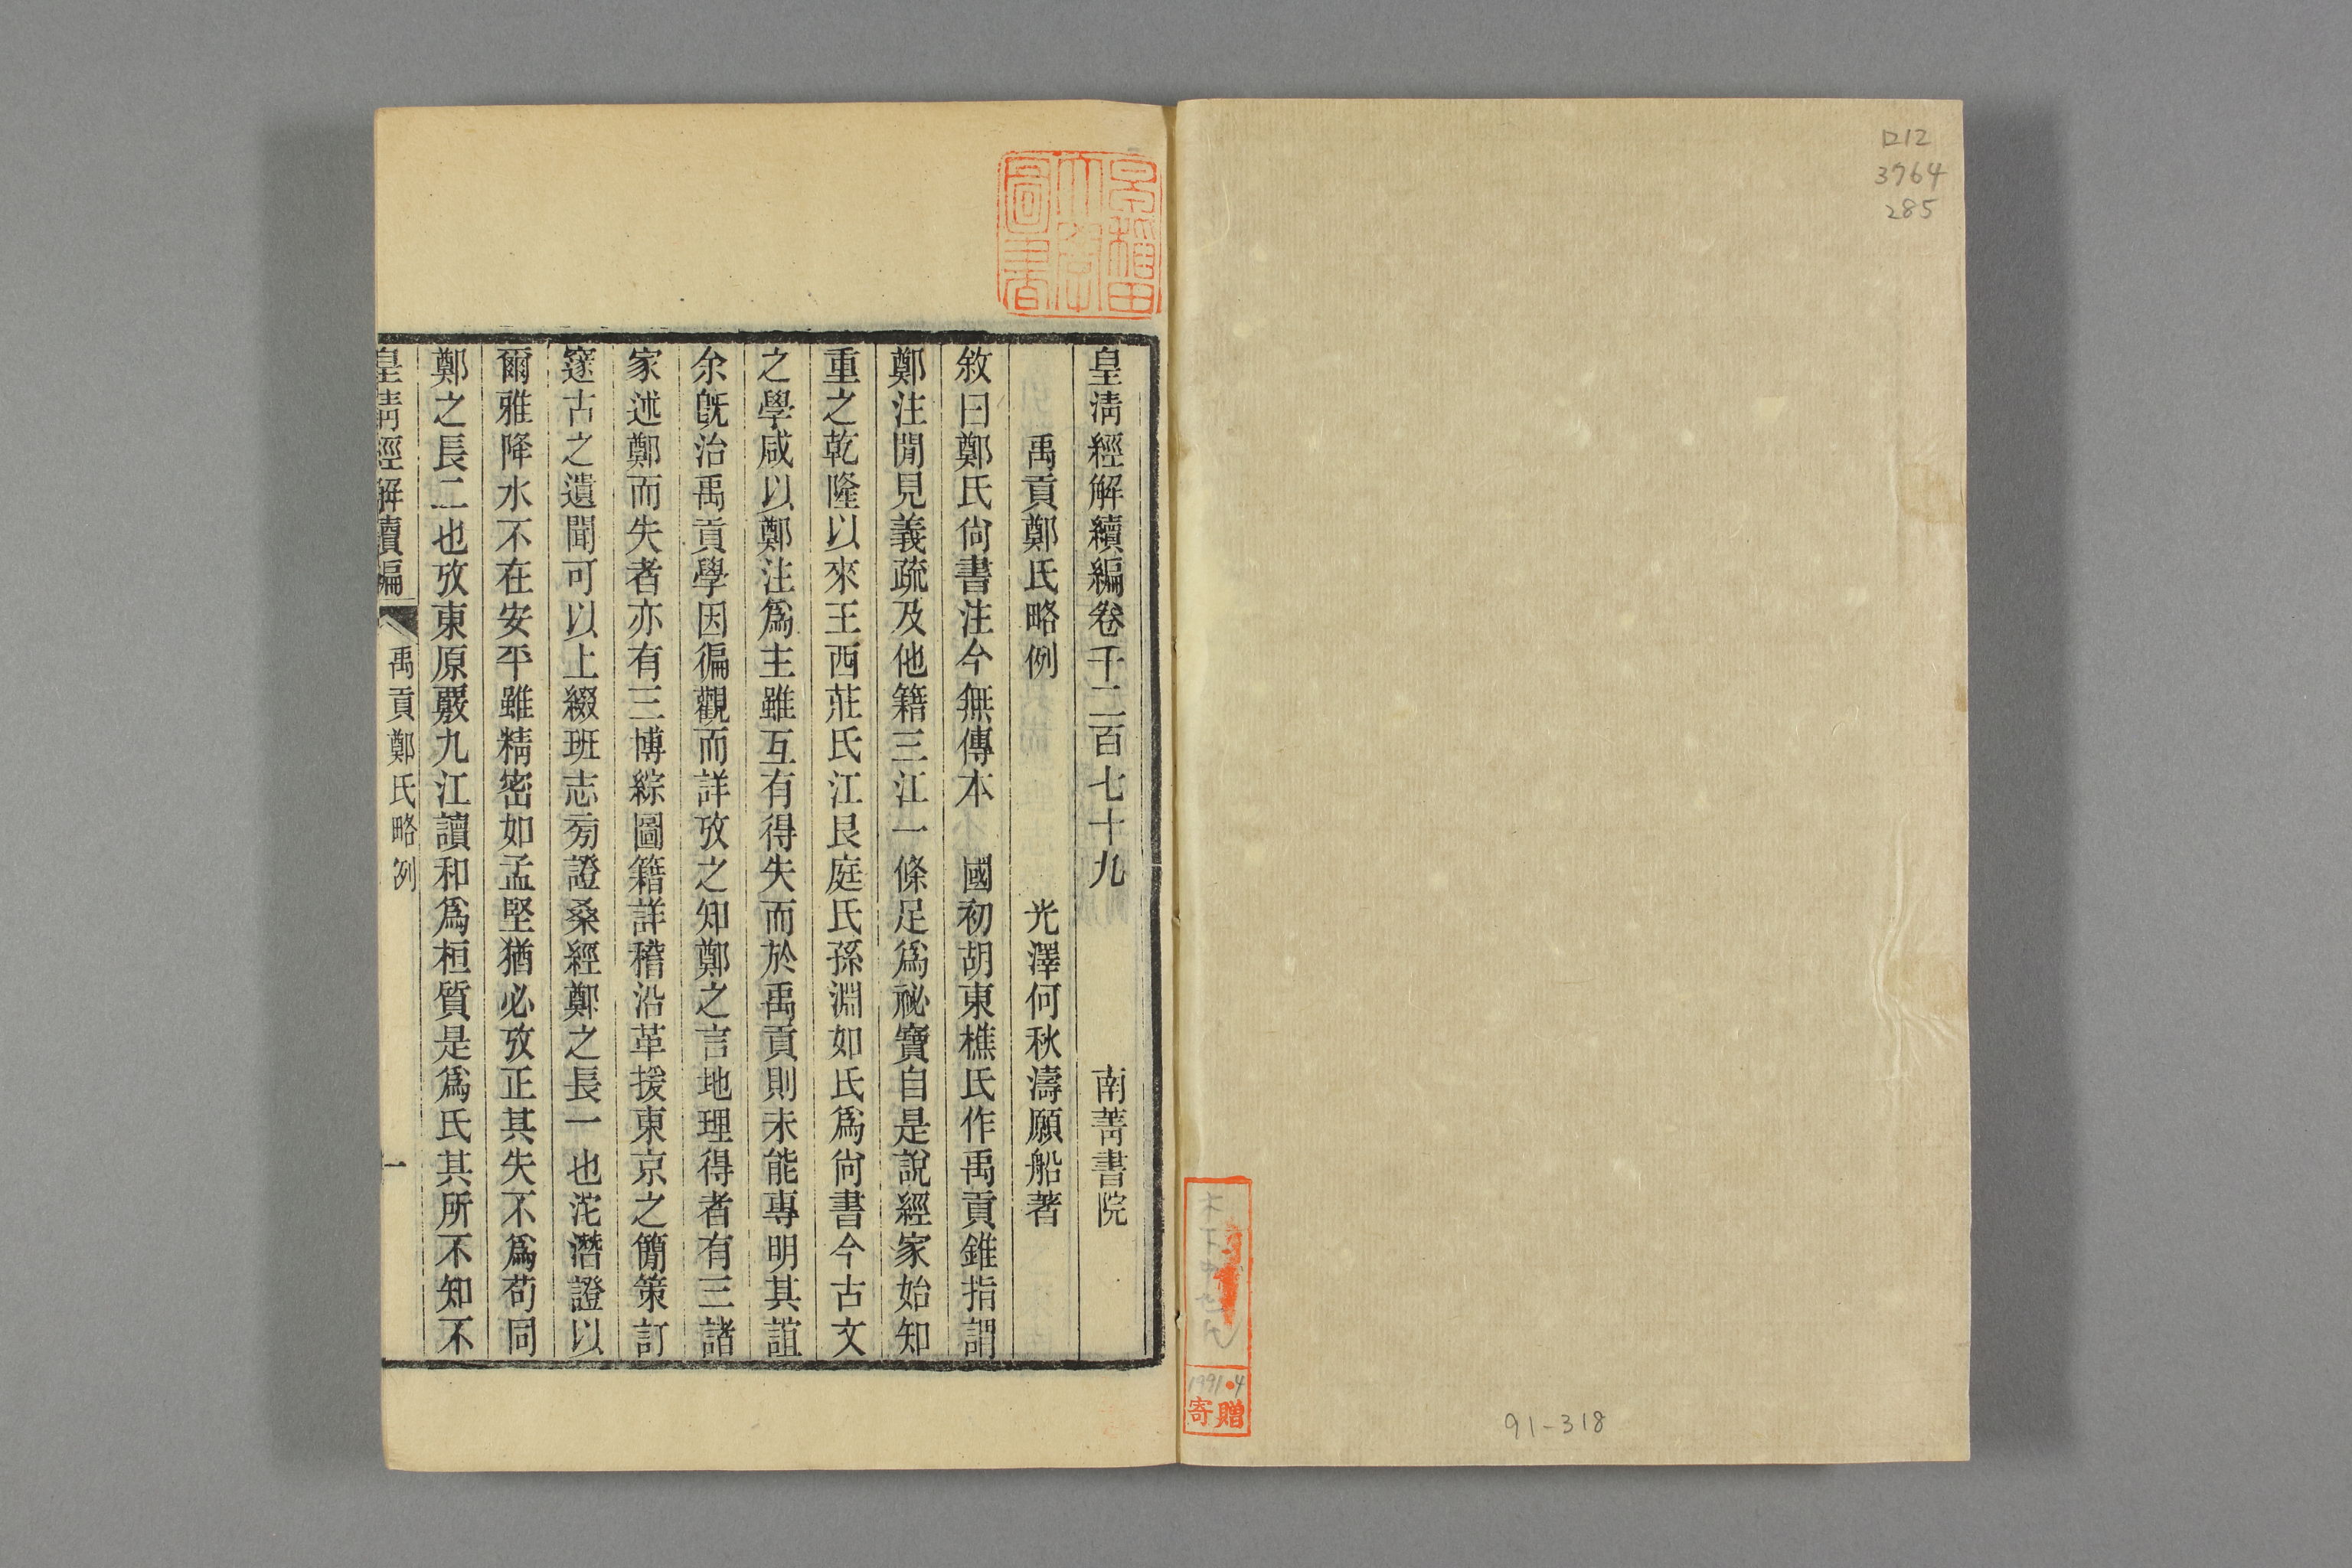 ロ12
3764
285
91-318
1991.4
寄贈
早稲田
大学
圖書
皇清經解續編卷千二百七十九 南菁書院
禹貢鄭氏略例 光澤何秋濤願船著
敘曰鄭氏尙書注今無傳本 國初胡東樵氏作禹貢錐指謂
鄭注閒見義疏及他籍三江一條足爲祕寶自是說經家始知
重之乾隆以來王西莊氏江艮庭氏孫淵如氏爲尙書今古文
之學咸以鄭注爲主雖互有得失而於禹貢則未能專明其誼
余旣治禹貢學因徧觀而詳攷之知鄭之言地理得者有三諸
家述鄭而失者亦有三博綜圖籍詳稽沿革援東京之簡策訂
邃古之遺聞可以上綴班志旁證桑經鄭之長一也沱潛證以
爾雅降水不在安平雖精密如孟堅猶必攷正其失不爲苟同
鄭之長二也攷東原覈九江讀和爲桓質是爲氏其所不知不
皇清經解續編 禹貢鄭氏略例 一